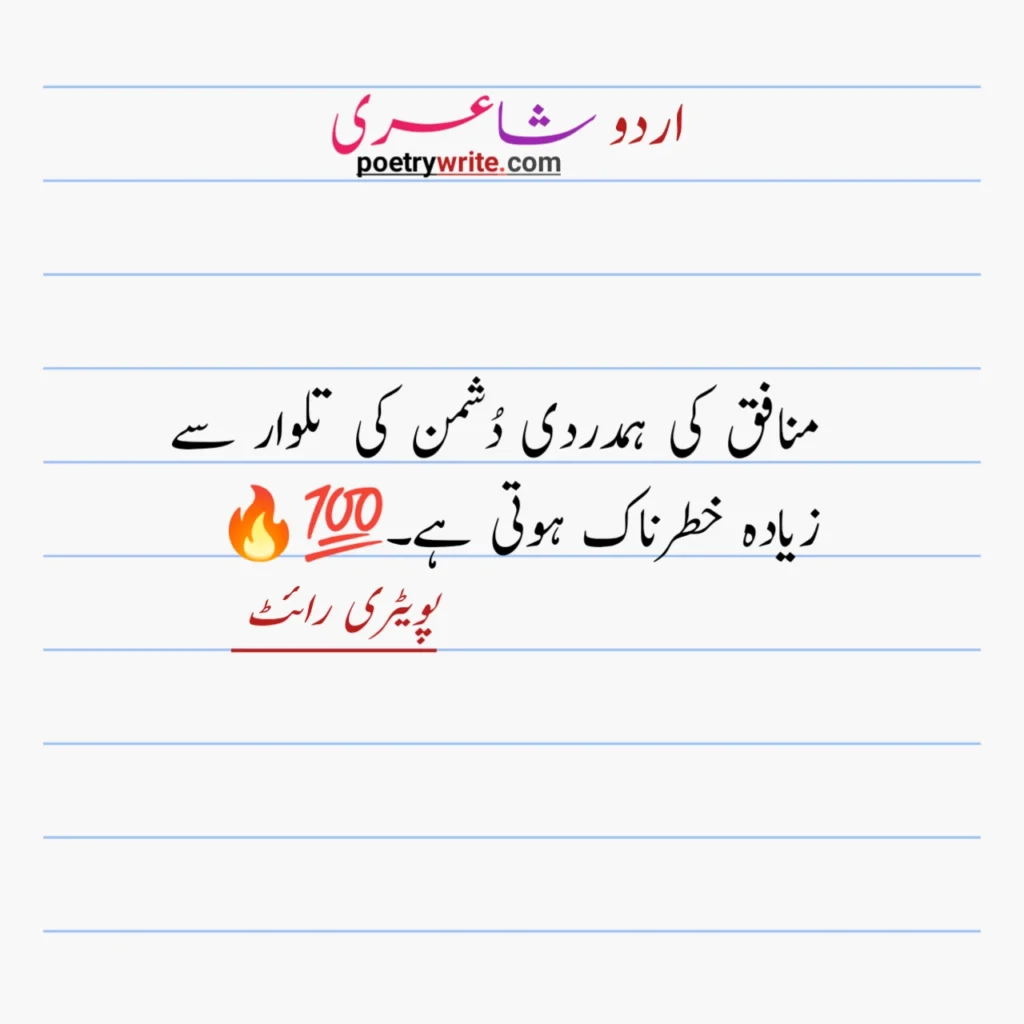 اردو شاعری
poetrywrite.com
منافق کی ہمدردی دُشمن کی تلوار سے
زیادہ خطرناک ہوتی ہے۔💯🔥
پویٹری رائٹ